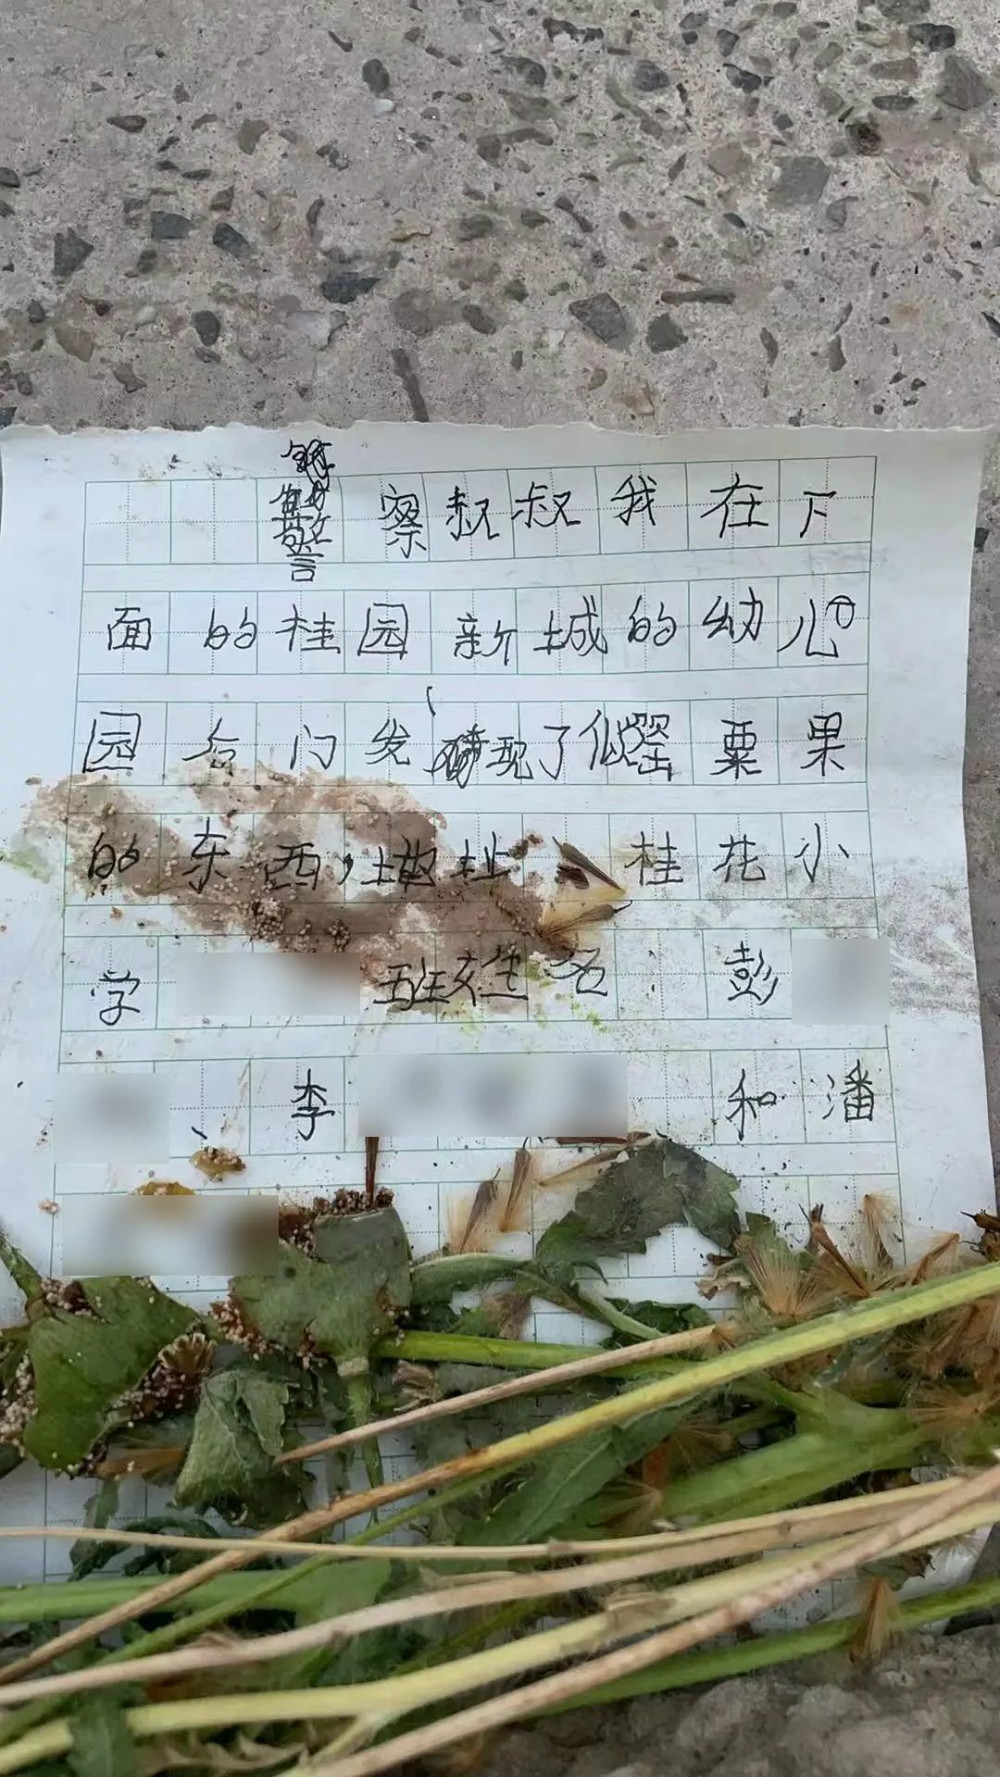 警察叔叔我在下
面的桂园新城的幼儿
园后门发现了似罂粟果
的东西，地址 桂花小
学 班姓名：彭
、李 和潘